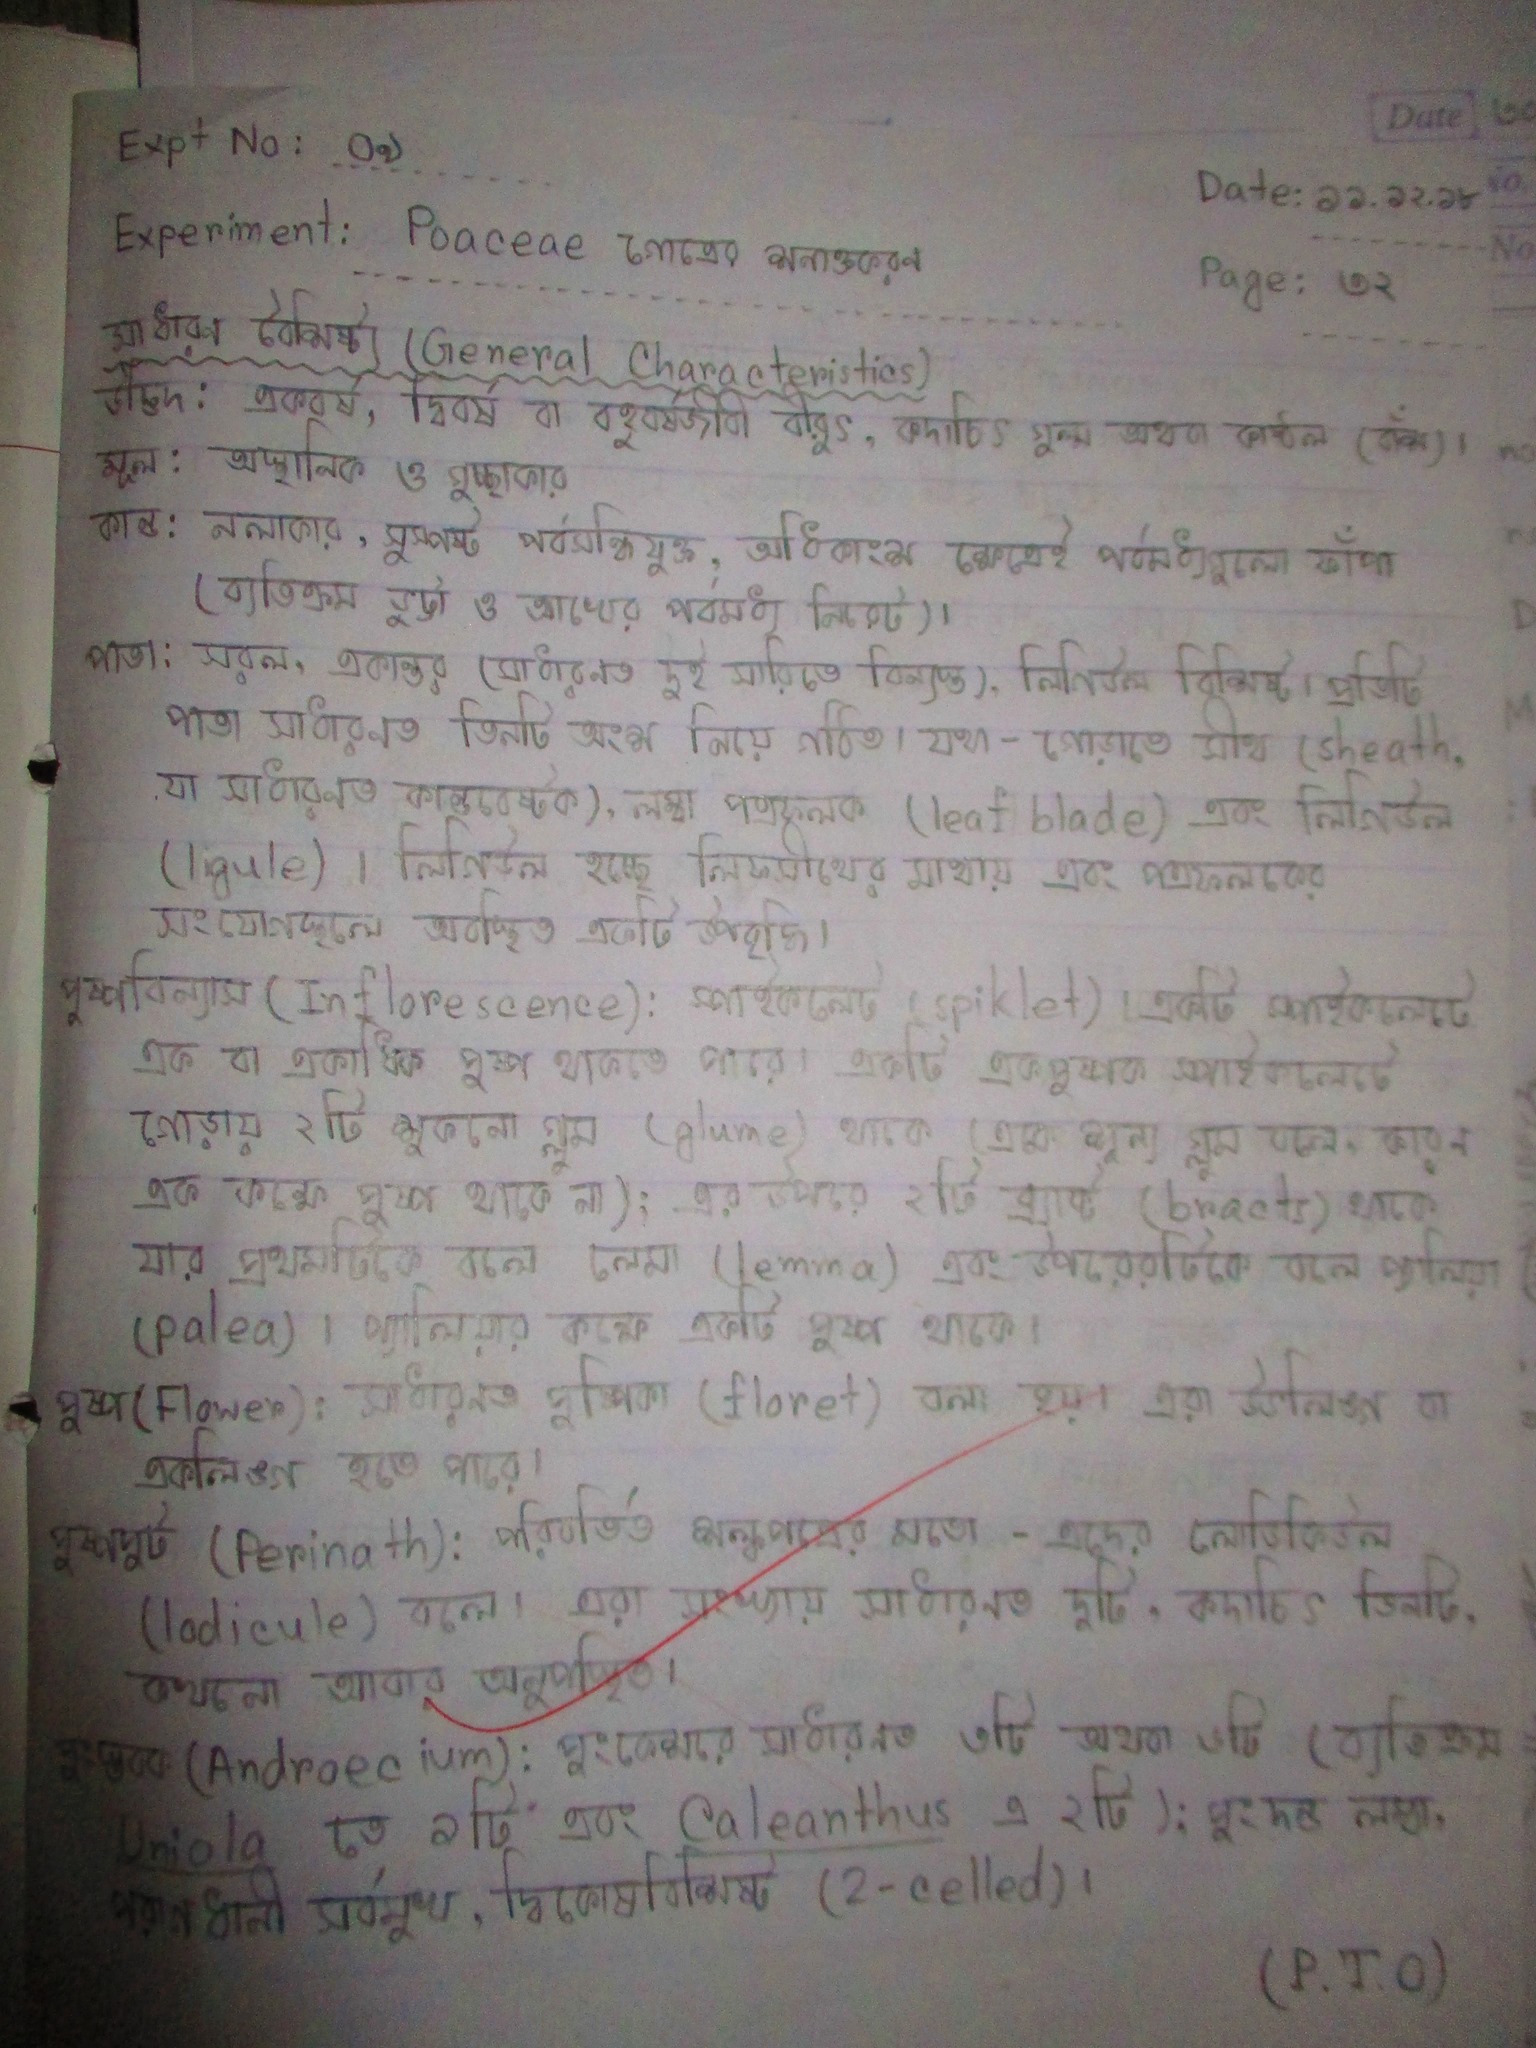 Expt No: ০৯
Date: ১১.১২.১৮
Experiment: Poaceae গোত্রের শনাক্তকরণ
Page: ৩২
সাধারণ বৈশিষ্ট্য (General Characteristics)
উদ্ভিদ: একবর্ষ, দ্বিবর্ষ বা বহুবর্ষজীবী বীরুৎ, কদাচিৎ গুল্ম অথবা কাষ্ঠল (বাঁশ)।
মূল: অস্থানিক ও গুচ্ছাকার
কান্ড: নলাকার, সুস্পষ্ট পর্বসন্ধিযুক্ত, অধিকাংশ ক্ষেত্রেই পর্বমধ্যগুলো ফাঁপা
(ব্যতিক্রম ভুট্টা ও আখের পর্বমধ্য নিরেট)।
পাতা: সরল, একান্তর (সাধারণত দুই সারিতে বিন্যস্ত), লিগিউল বিশিষ্ট। প্রতিটি
পাতা সাধারণত তিনটি অংশ নিয়ে গঠিত। যথা - গোড়াতে সীথ (sheath,
যা সাধারণত কান্ডবেষ্টক), লম্বা পত্রফলক (leaf blade) এবং লিগিউল
(ligule)। লিগিউল হচ্ছে লিফসীথের মাথায় এবং পত্রফলকের
সংযোগস্থলে অবস্থিত একটি উপবৃদ্ধি।
পুষ্পবিন্যাস (Inflorescence): স্পাইকলেট (spiklet)। একটি স্পাইকলেটে
এক বা একাধিক পুষ্প থাকতে পারে। একটি একপুষ্পক স্পাইকলেটে
গোড়ায় ২টি শুকনো গ্লুম (glume) থাকে (একে শূন্য গ্লুম বলে, কারণ
এক কক্ষে পুষ্প থাকে না); এর উপরে ২টি ব্র্যাক্ট (bracts) থাকে
যার প্রথমটিকে বলে লেমা (lemma) এবং উপরেরটিকে বলে প্যালিয়া
(palea)। প্যালিয়ার কক্ষে একটি পুষ্প থাকে।
পুষ্প (Flower): সাধারণত পুষ্পিকা (floret) বলা হয়। এরা উভলিঙ্গ বা
একলিঙ্গ হতে পারে।
পুষ্পপুট (Perinath): পরিবর্তিত শল্কপত্রের মতো - এদের লোডিকিউল
(lodicule) বলে। এরা সংখ্যায় সাধারণত দুটি, কদাচিৎ তিনটি,
কখনো আবার অনুপস্থিত।
পুংস্তবক (Androecium): পুংকেশরে সাধারণত ৩টি অথবা ৬টি (ব্যতিক্রম
Uniola তে ১টি এবং Caleanthus এ ২টি); পুংদন্ড লম্বা,
পরাগধানী সর্বমুখ, দ্বিকোষবিশিষ্ট (2-celled)।
(P.T.O)